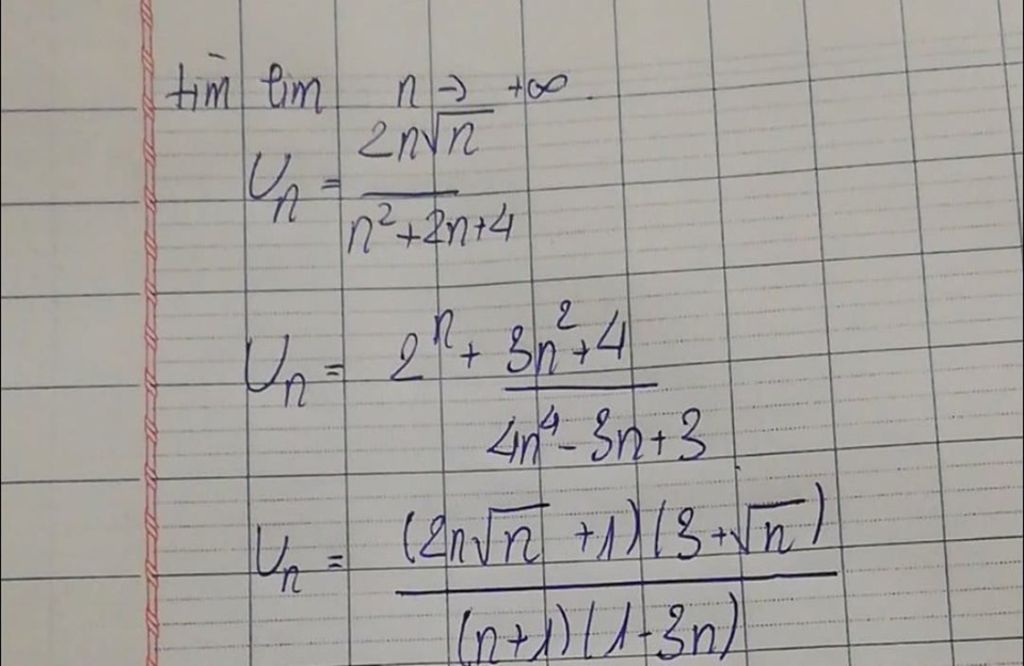 tìm lim n → +∞
Un = 2n√n / n² + 2n + 4
Un = 2ⁿ + 3n² + 4 / 4n⁴ - 3n + 3
Un = (2n√n + 1)(3 + √n) / (n+1)(1-3n)